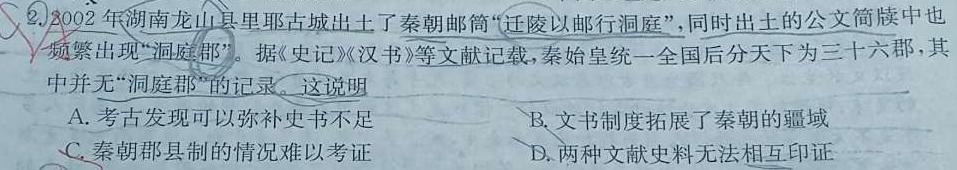 2. 2002年湖南龙山县里耶古城出土了秦朝邮筒“迁陵以邮行洞庭”,同时出土的公文简牍中也
频繁出现“洞庭郡”。据《史记》《汉书》等文献记载,秦始皇统一全国后分天下为三十六郡,其
中并无“洞庭郡”的记录。这说明
A. 考古发现可以弥补史书不足 B. 文书制度拓展了秦朝的疆域
C. 秦朝郡县制的情况难以考证 D. 两种文献史料无法相互印证